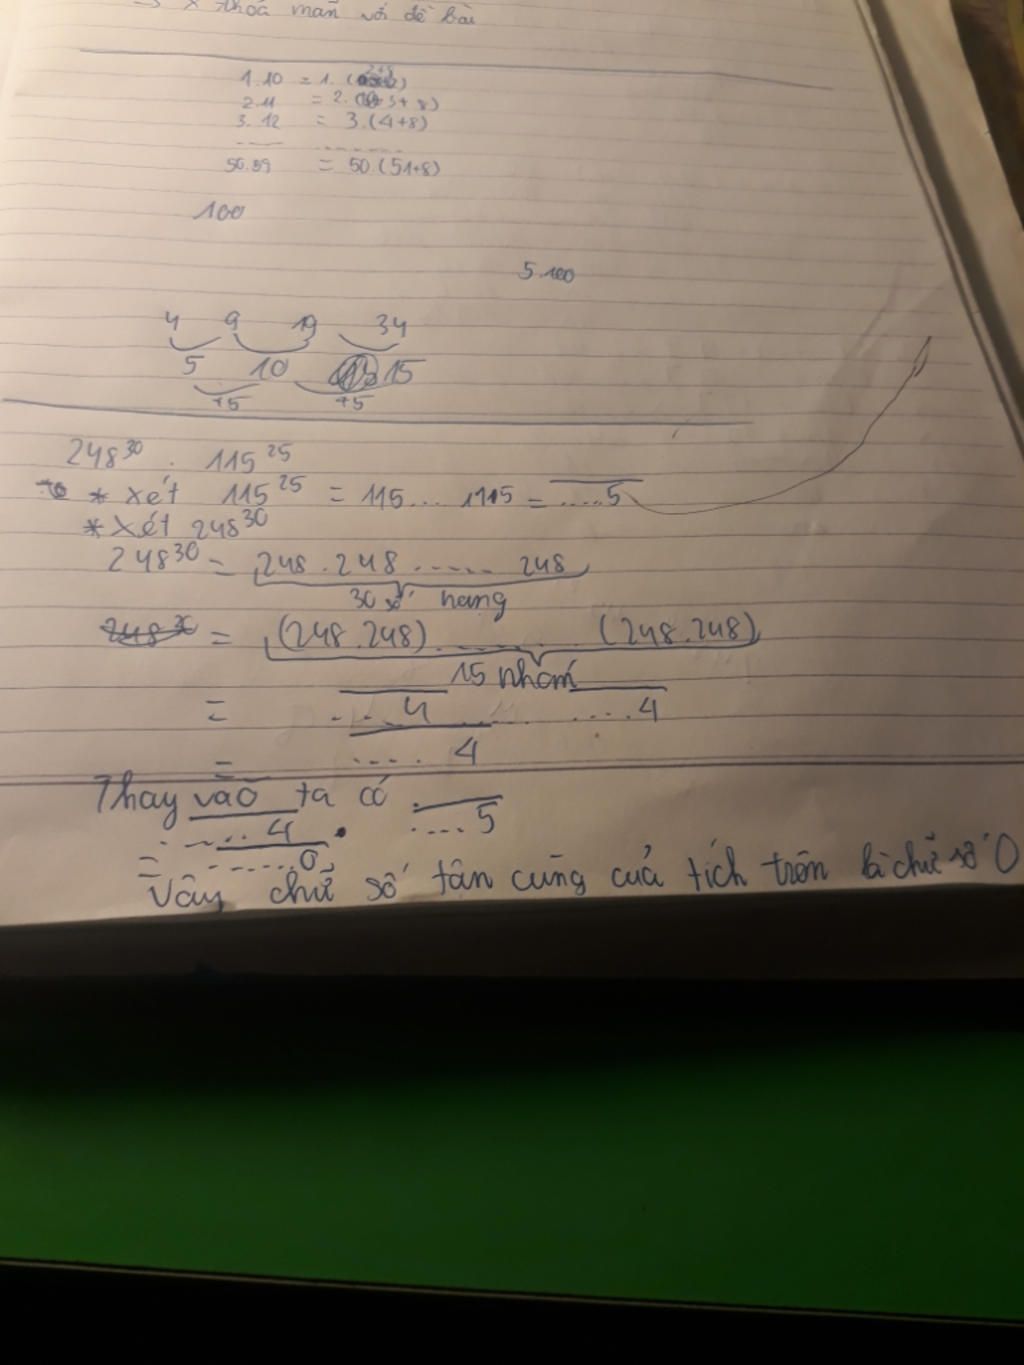 X thoả mãn với đề bài
1.10 = 1.(2+8)
2.11 = 2.(3+8)
3.12 = 3.(4+8)
---- .......
50.59 = 50.(51+8)
100
5.100
4 9 19 34
5 10 15
+5 +5
248³⁰ . 115²⁵
* Xét 115²⁵ = 115...1115 = .....5
* Xét 248³⁰
248³⁰ = 248.248 ..... 248
30 số hạng
= (248.248) ....... (248.248)
15 nhóm
= ...4 ... ....4
= ....4
Thay vào ta có
.....4 . ....5
= ......0
Vậy chữ số tận cùng của tích trên là chữ số 0